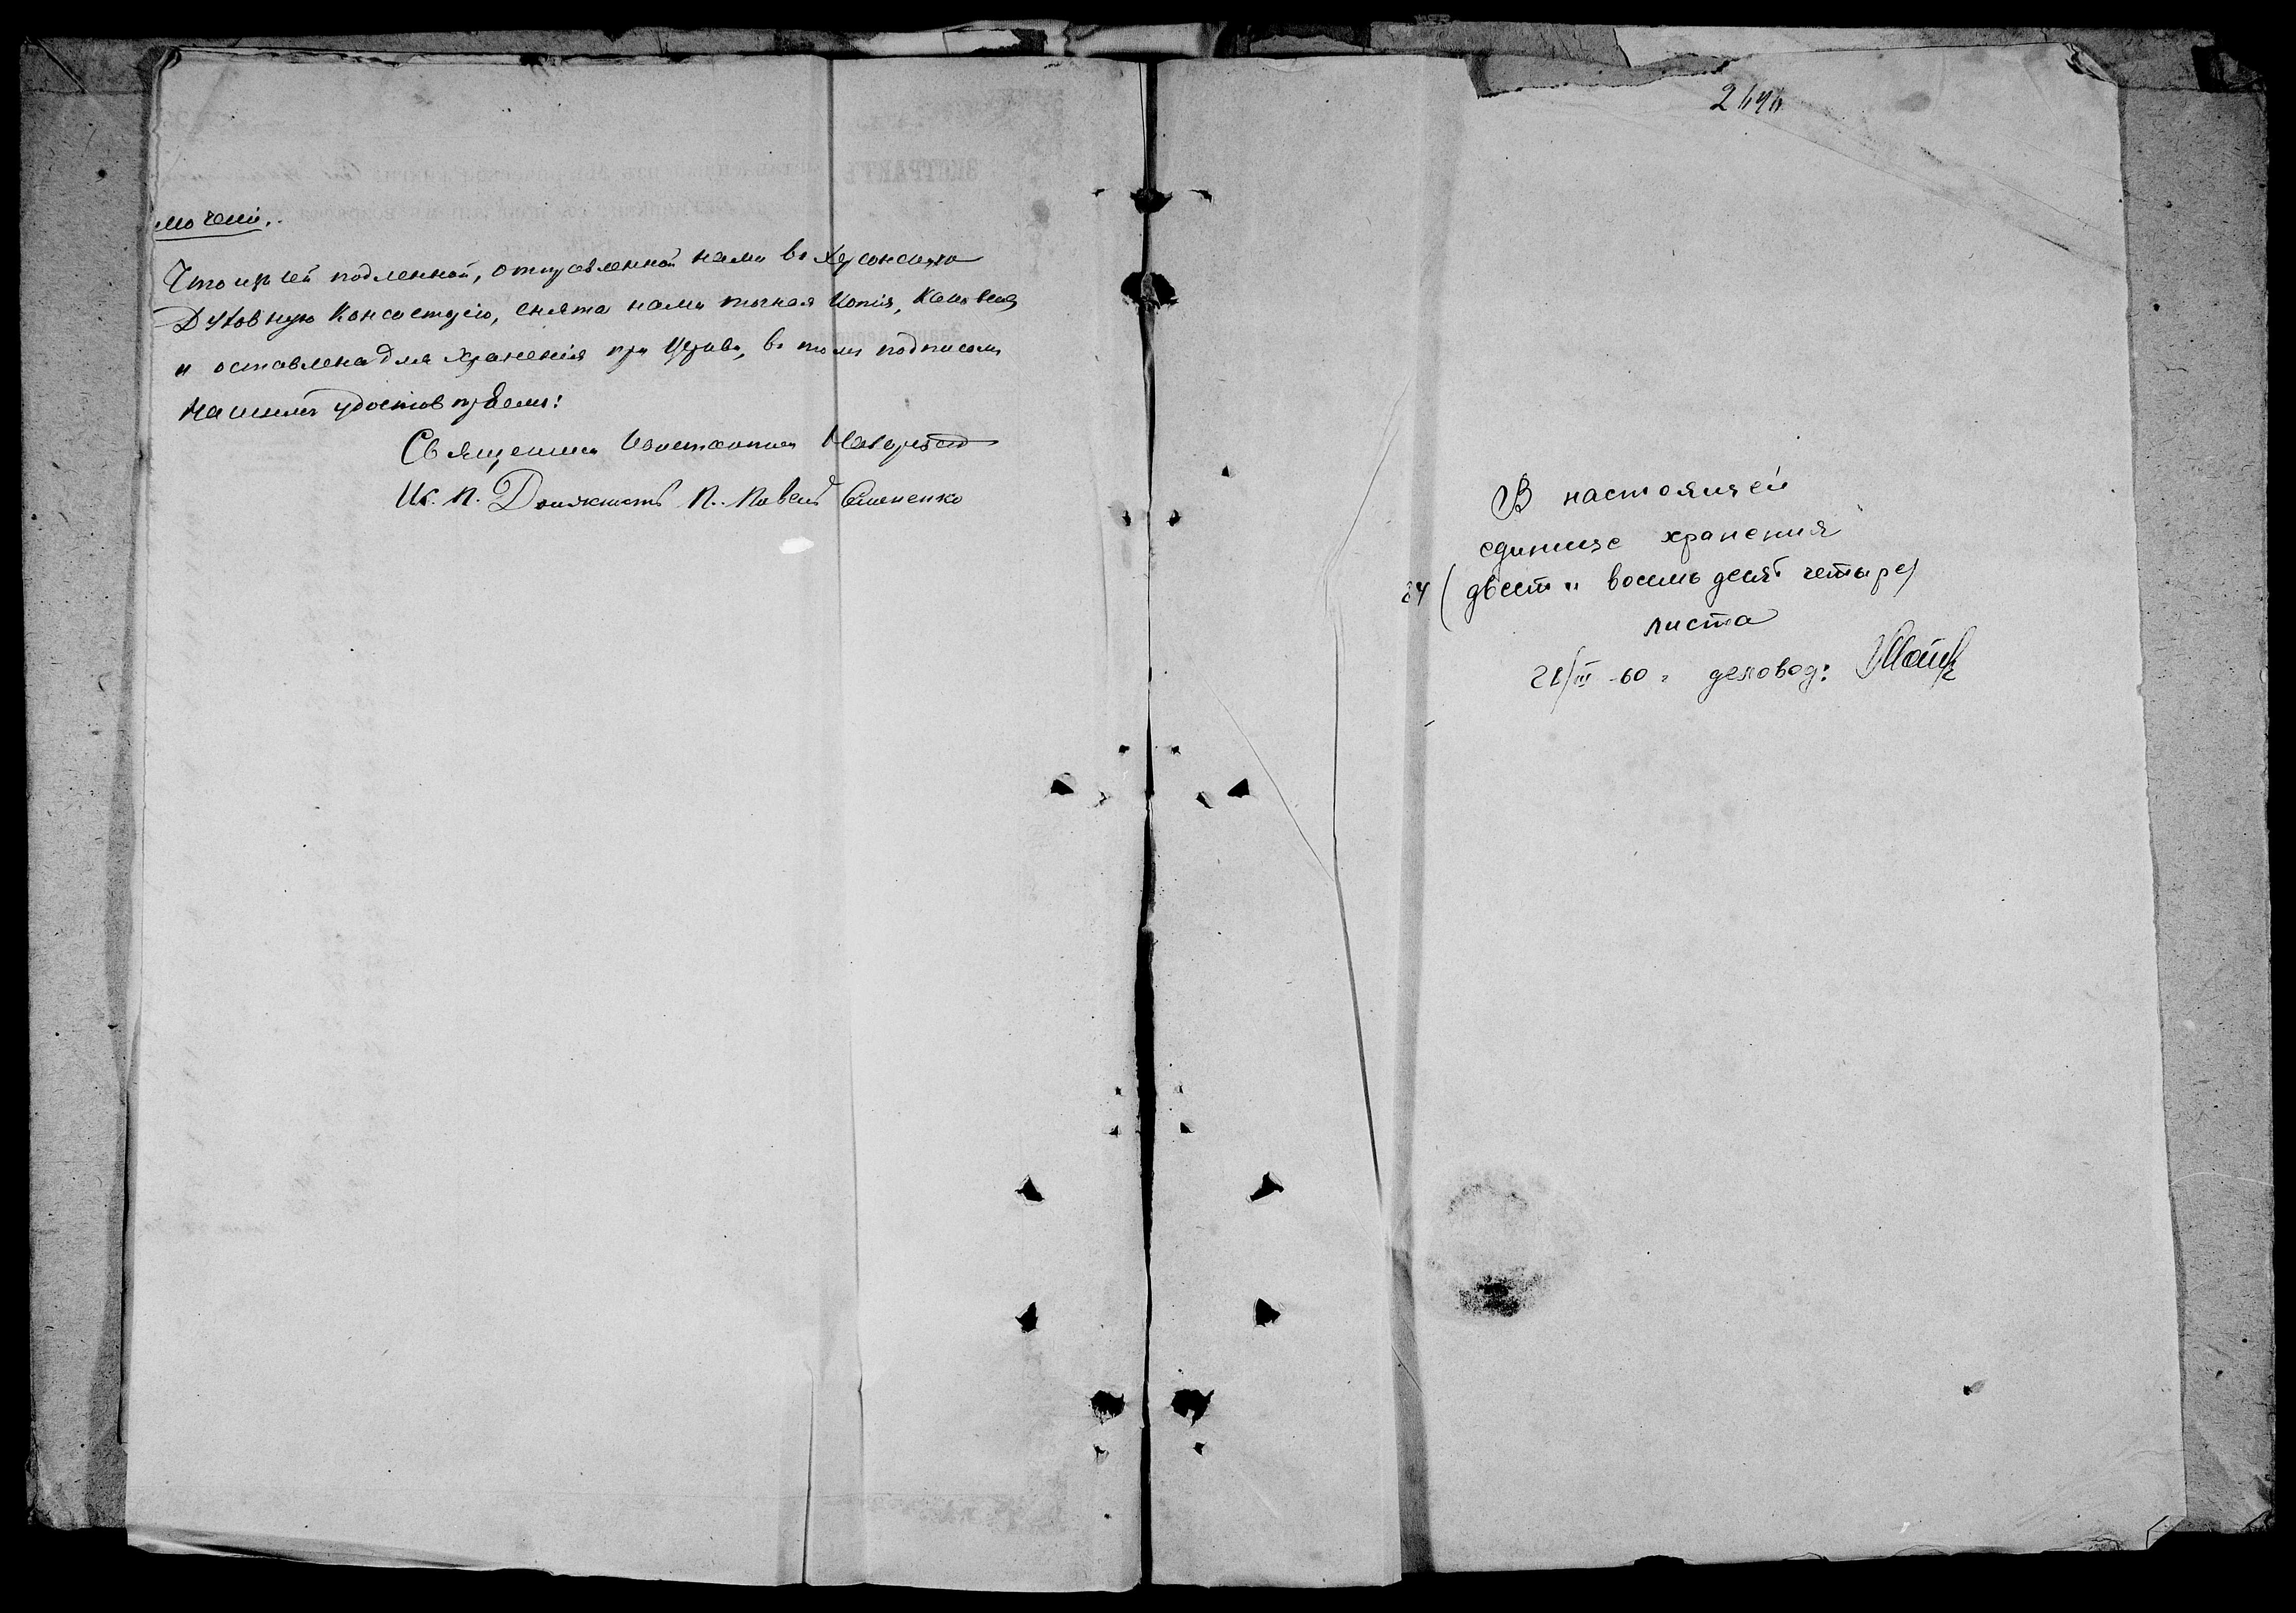 Что изъ сей подленной, отправленной нами въ Херсонскую
Духовную Консисторію, снята нами точная Копія,
и оставлена для храненія при Церкви, въ томъ подписомъ
нашимъ удостовѣряемъ:
Священникъ Константинъ
Ис. п. Должность П. Павелъ
В настоящей
единице хранения
84 (двести восемьдесят четыре)
листа
21/III-60г деловод: